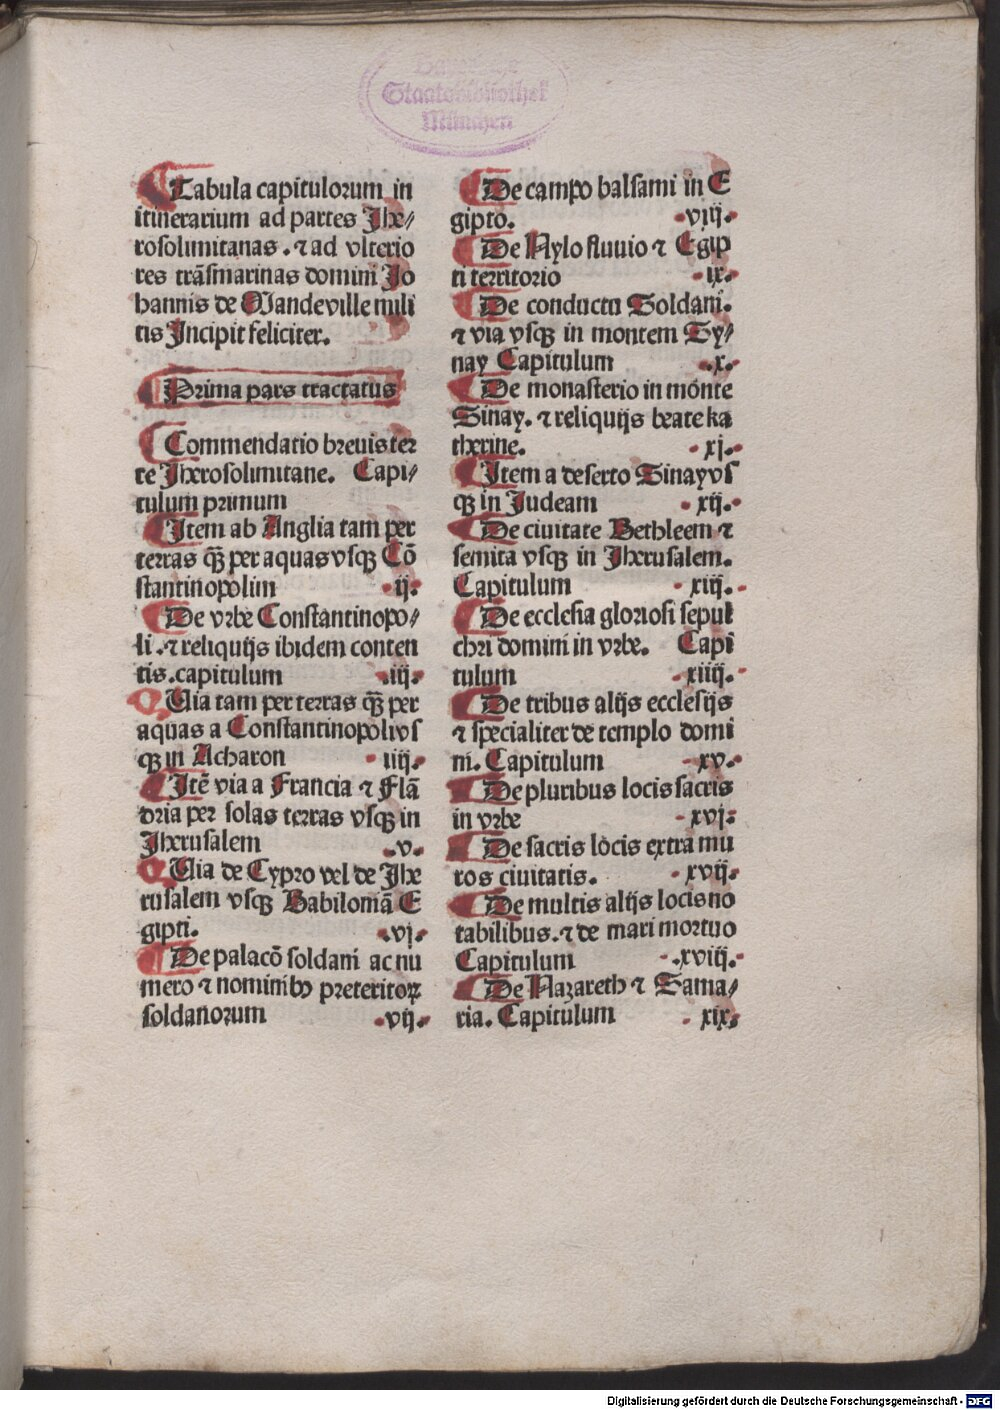 Bayerische
Staatsbibliothek
München
Tabula capitulorum in
itinerarium ad partes Jhe⸗
rosolimitanas . ⁊ ad vlterio
res trāsmarinas domini Jo
hannis de Mandeville mili
tis Incipit feliciter.
Prima pars tractatus
Commendatio breuis ter
re Jherosolimitane. Capi⸗
tulum primum
Item ab Anglia tam per
terras qȝ̄ per aquas vsqȝ Cō
stantinopolim .ij.
De vrbe Constantinopo⸗
li . ⁊ reliquijs ibidem conten
tis . capitulum .iij.
Uia tam per terras qȝ̄ per
aquas a Constantinopoli vs
qȝ in Acharon .iiij.
Itē via a Francia ⁊ Flā
dria per solas terras vsqȝ in
Jherusalem .v.
Uia de Cypro vel de Jhe
rusalem vsqȝ Babiloniā E
gipti. .vj.
De palacō soldani ac nu
mero ⁊ nominibꝯ preteritoꝝ
soldanorum .vij.
De campo balsami in E
gipto. .viij.
De Nylo fluuio ⁊ Egip
ti territorio .ix.
De conductu Soldani.
⁊ via vsqȝ in montem Sy⸗
nay Capitulum .x.
De monasterio in monte
Sinay. ⁊ reliquijs beate ka
therine. .xj.
Item a deserto Sinay vs
qȝ in Judeam .xij.
De ciuitate Bethleem ⁊
semita vsqȝ in Jherusalem.
Capitulum .xiij.
De ecclesia gloriosi sepul
chri domini in vrbe. Capi
tulum .xiiij.
De tribus alijs ecclesijs
⁊ specialiter de templo domi
ni. Capitulum .xv.
De pluribus locis sacris
in vrbe .xvj.
De sacris locis extra mu
ros ciuitatis. .xvij.
De multis alijs locis no
tabilibus. ⁊ de mari mortuo
Capitulum .xviij.
De Nazareth ⁊ Sama⸗
ria. Capitulum .xix.
Digitalisierung gefördert durch die Deutsche Forschungsgemeinschaft - DFG